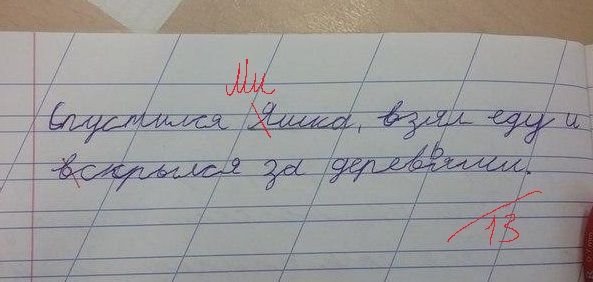 Ми
Спустился Яшка, взял еду и
вскрылся за деревьями.
13